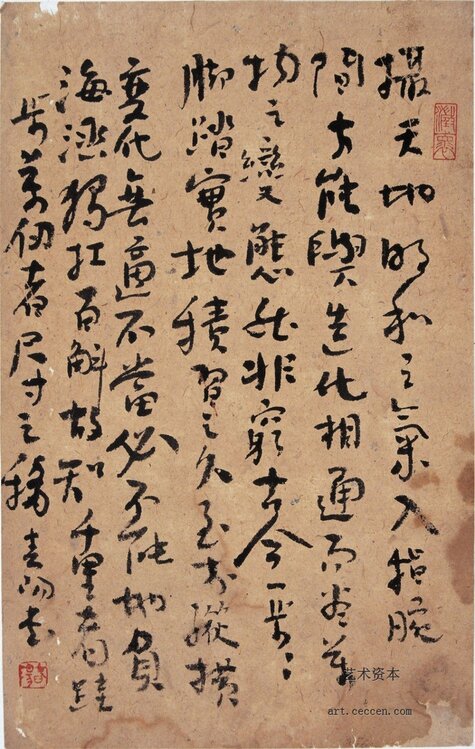 攝天地明和之氣入指腕
間方能與造化相通而盡萬
物之變態然非窮古今一步々
脚踏實地積習之久至於縱橫
變化無適不當必不能地負
海涵獨扛百斛故知千里者跬
步萬仞者尺寸之積 書
艺术资本
art.ceccen.com